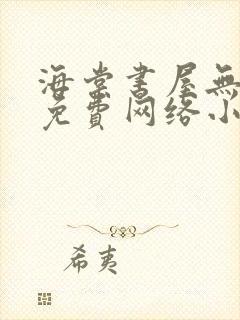 海棠書屋無
免費网络小
希夷